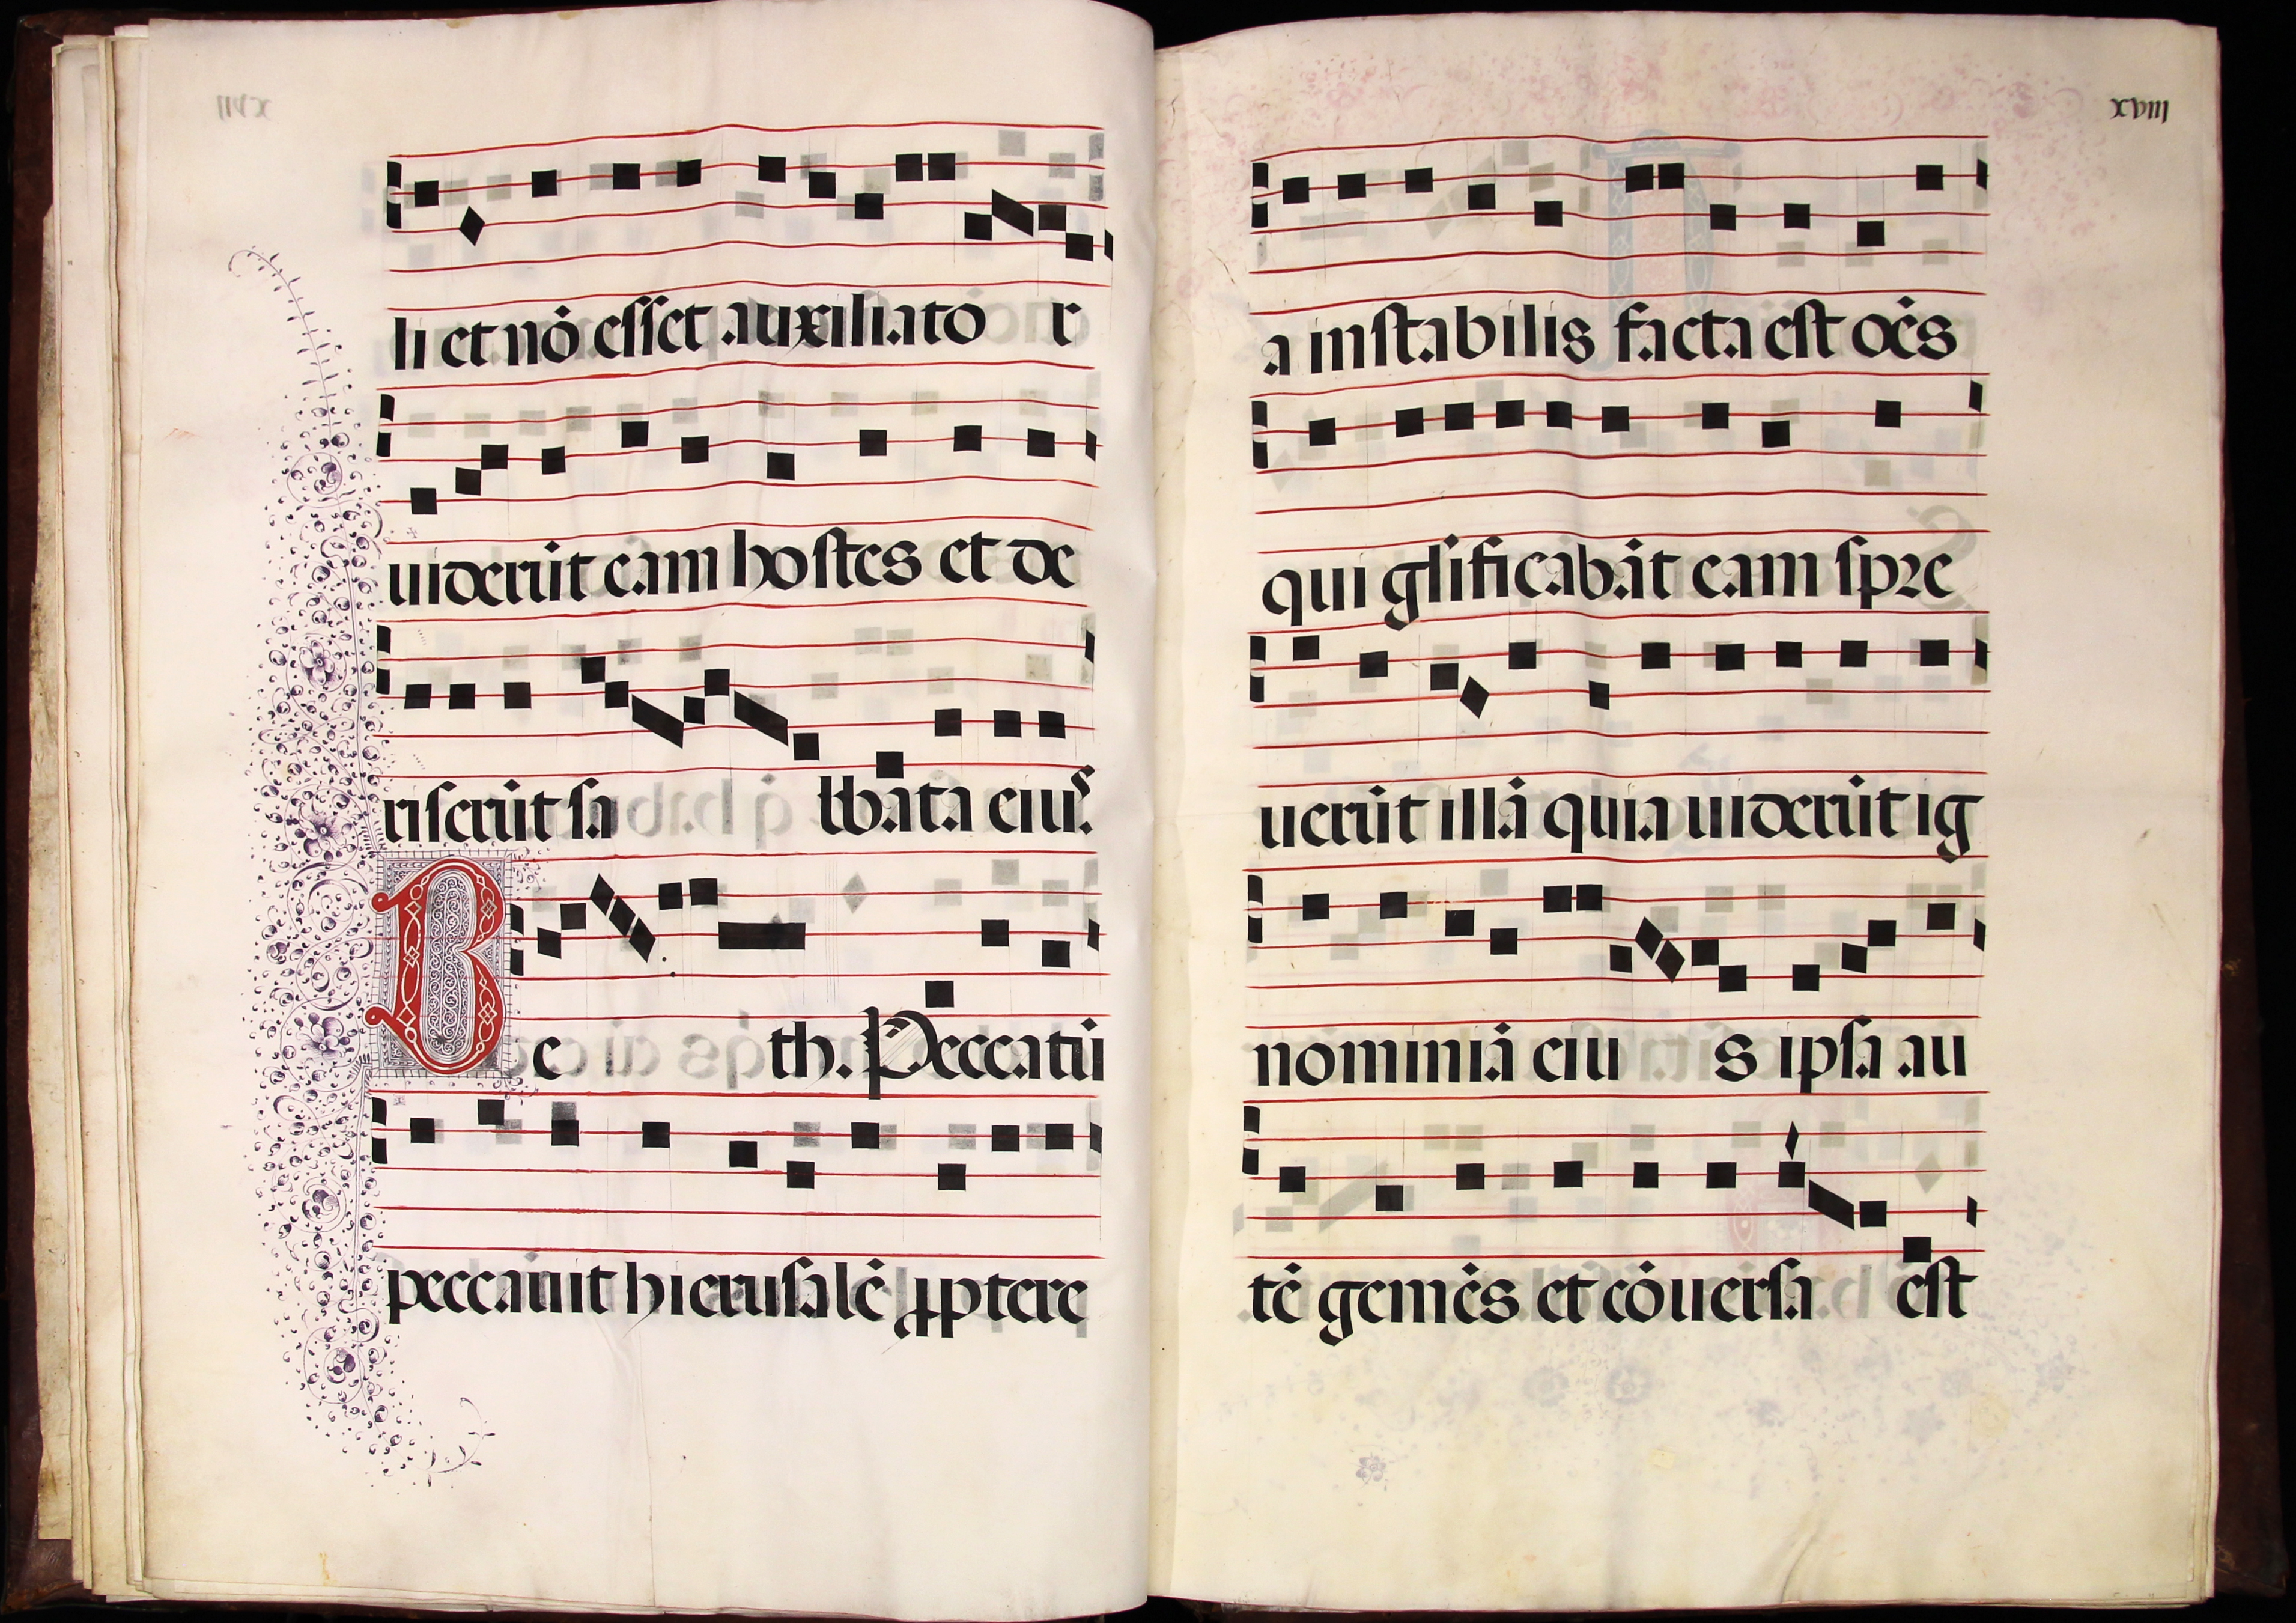 li et nō esset auxiliato r
uiderūt eam hostes et de
riserūt sa bbata eius.
Be th. Peccatū
peccauit hierusalē ꝓptere
xviii
a instabilis facta est oēs
qui glificabāt eam spre
uerūt illā quia uiderūt ig
nominiā eiu s ipsa au
tē gemēs et cōuersa est